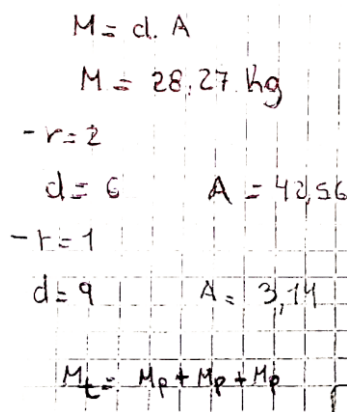 M = d. A
M = 28,27 kg
- r = 2
d = 6 A = 42,56
- r = 1
d = 9 A = 3,14
M_t = M_p + M_p + M_p